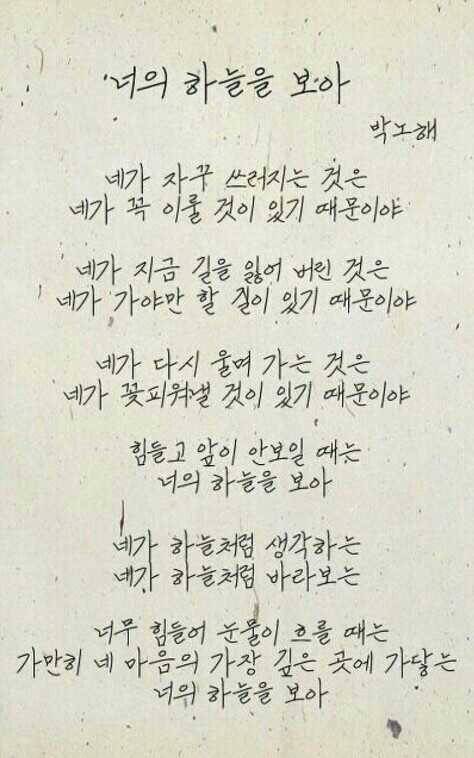 너의 하늘을 보아
박노해
네가 자꾸 쓰러지는 것은
네가 꼭 이룰 것이 있기 때문이야
네가 지금 길을 잃어 버린 것은
네가 가야만 할 길이 있기 때문이야
네가 다시 울며 가는 것은
네가 꽃피워낼 것이 있기 때문이야
힘들고 앞이 안보일 때는
너의 하늘을 보아
네가 하늘처럼 생각하는
네가 하늘처럼 바라보는
너무 힘들어 눈물이 흐를 때는
가만히 네 마음의 가장 깊은 곳에 가닿는
너의 하늘을 보아